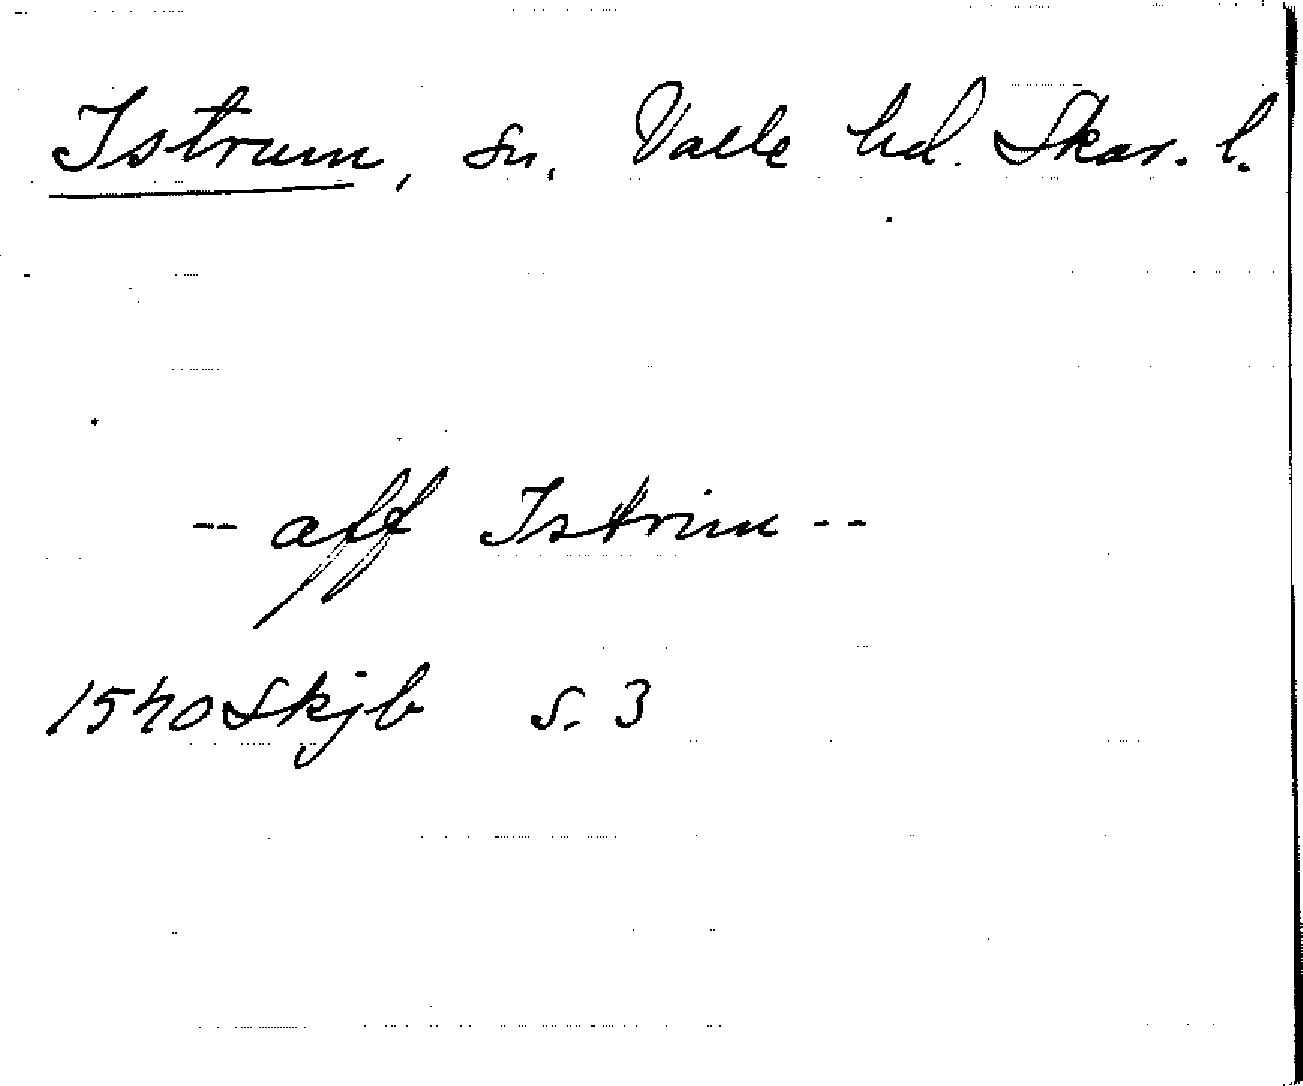 Istrum, sn. Valle hd. Skar. l.
-- aff Istrim --
1540 Skjb s. 3